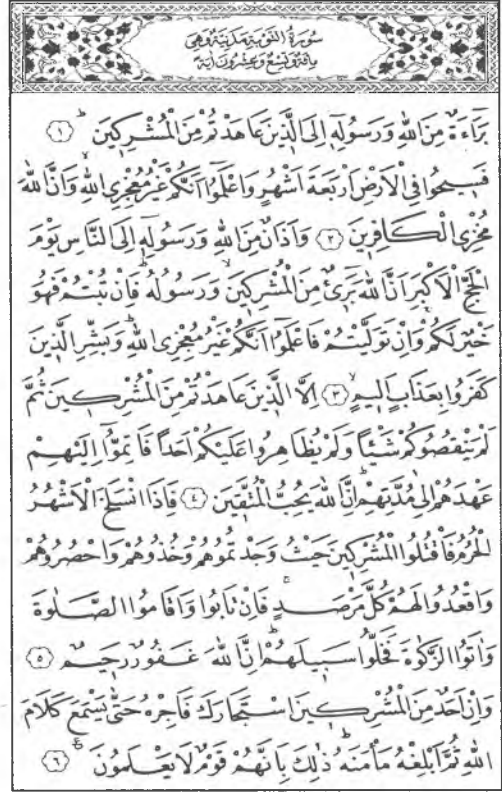 سُورَةُ التَّوْبَةِ مَدَنِيَّةٌ وَهِيَ
مِائَةٌ وَتِسْعٌ وَعِشْرُونَ اٰيَةً
بَرَٓاءَةٌ مِنَ اللّٰهِ وَرَسُولِه۪ٓ اِلَى الَّذ۪ينَ عَاهَدْتُمْ مِنَ الْمُشْرِك۪ينَۜ ﴿١﴾
فَس۪يحُوا فِي الْاَرْضِ اَرْبَعَةَ اَشْهُرٍ وَاعْلَمُٓوا اَنَّكُمْ غَيْرُ مُعْجِزِي اللّٰهِۙ وَاَنَّ اللّٰهَ
مُخْزِي الْكَافِر۪ينَ ﴿٢﴾ وَاَذَانٌ مِنَ اللّٰهِ وَرَسُولِه۪ٓ اِلَى النَّاسِ يَوْمَ
الْحَجِّ الْاَكْبَرِ اَنَّ اللّٰهَ بَر۪ٓيءٌ مِنَ الْمُشْرِك۪ينَۙ وَرَسُولُهُۜ فَاِنْ تُبْتُمْ فَهُوَ
خَيْرٌ لَكُمْۚ وَاِنْ تَوَلَّيْتُمْ فَاعْلَمُٓوا اَنَّكُمْ غَيْرُ مُعْجِزِي اللّٰهِۜ وَبَشِّرِ الَّذ۪ينَ
كَفَرُوا بِعَذَابٍ اَل۪يمٍۙ ﴿٣﴾ اِلَّا الَّذ۪ينَ عَاهَدْتُمْ مِنَ الْمُشْرِك۪ينَ ثُمَّ
لَمْ يَنْقُصُوكُمْ شَيْـًٔا وَلَمْ يُظَاهِرُوا عَلَيْكُمْ اَحَدًا فَاَتِمُّٓوا اِلَيْهِمْ
عَهْدَهُمْ اِلٰى مُدَّتِهِمْۜ اِنَّ اللّٰهَ يُحِبُّ الْمُتَّق۪ينَ ﴿٤﴾ فَاِذَا انْسَلَخَ الْاَشْهُرُ
الْحُرُمُ فَاقْتُلُوا الْمُشْرِك۪ينَ حَيْثُ وَجَدْتُمُوهُمْ وَخُذُوهُمْ وَاحْصُرُوهُمْ
وَاقْعُدُوا لَهُمْ كُلَّ مَرْصَدٍۚ فَاِنْ تَابُوا وَاَقَامُوا الصَّلٰوةَ
وَاٰتَوُا الزَّكٰوةَ فَخَلُّوا سَب۪يلَهُمْۜ اِنَّ اللّٰهَ غَفُورٌ رَح۪يمٌ ﴿٥﴾
وَاِنْ اَحَدٌ مِنَ الْمُشْرِك۪ينَ اسْتَجَارَكَ فَاَجِرْهُ حَتّٰى يَسْمَعَ كَلَامَ
اللّٰهِ ثُمَّ اَبْلِغْهُ مَأْمَنَهُۜ ذٰلِكَ بِاَنَّهُمْ قَوْمٌ لَا يَعْلَمُونَ۟ ﴿٦﴾